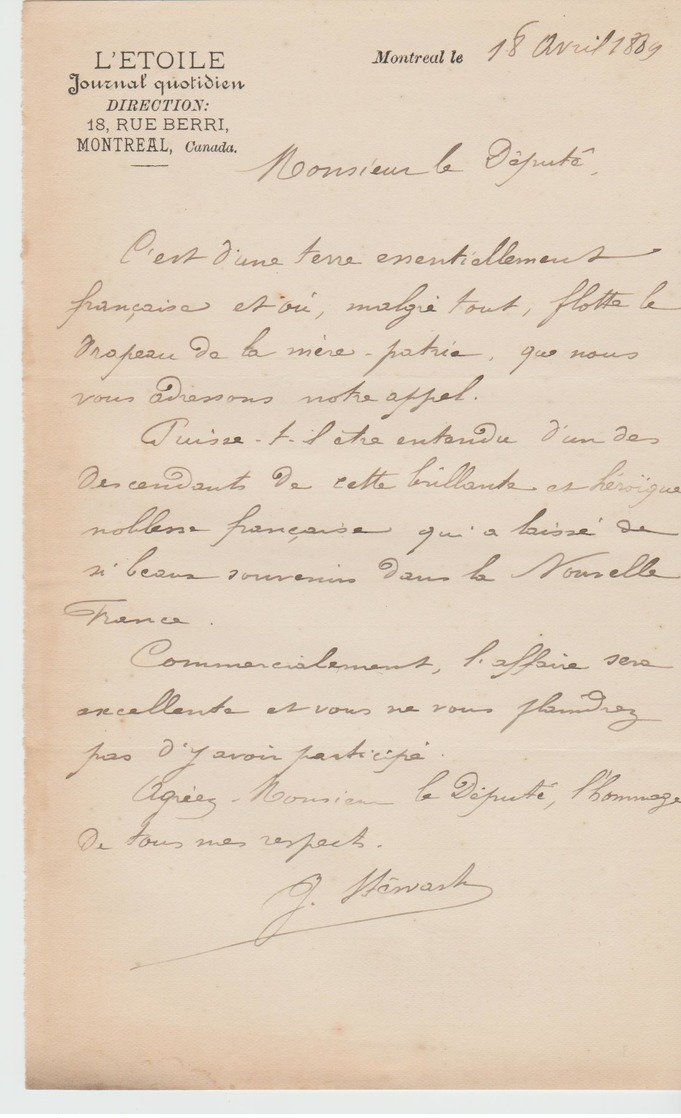 L'ETOILE
Journal quotidien
DIRECTION:
18, RUE BERRI,
MONTREAL, Canada.
Montreal le 18 Avril 1889
Monsieur le Député,
C'est d'une terre essentiellement
française et où, malgré tout, flotte le
Drapeau de la mère-patrie, que nous
vous adressons notre appel.
Puisse-t-il être entendu d'un des
descendants de cette brillante et héroïque
noblesse française qui a laissé de
si beaux souvenirs dans la Nouvelle
France.
Commercialement, l'affaire sera
excellente et vous ne vous plaindrez
pas d'y avoir participé.
Agréez Monsieur le Député, l'hommage
de tous mes respects.
J. Stéwart